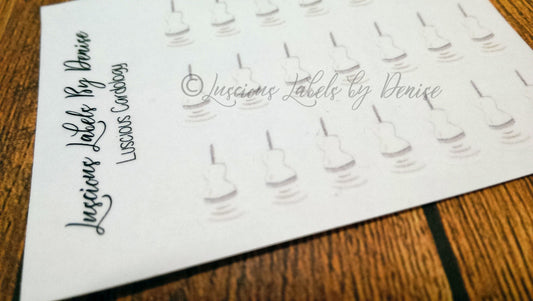 Luscious Labels By Denise
Luscious Cardology
©Luscious Labels by Denise